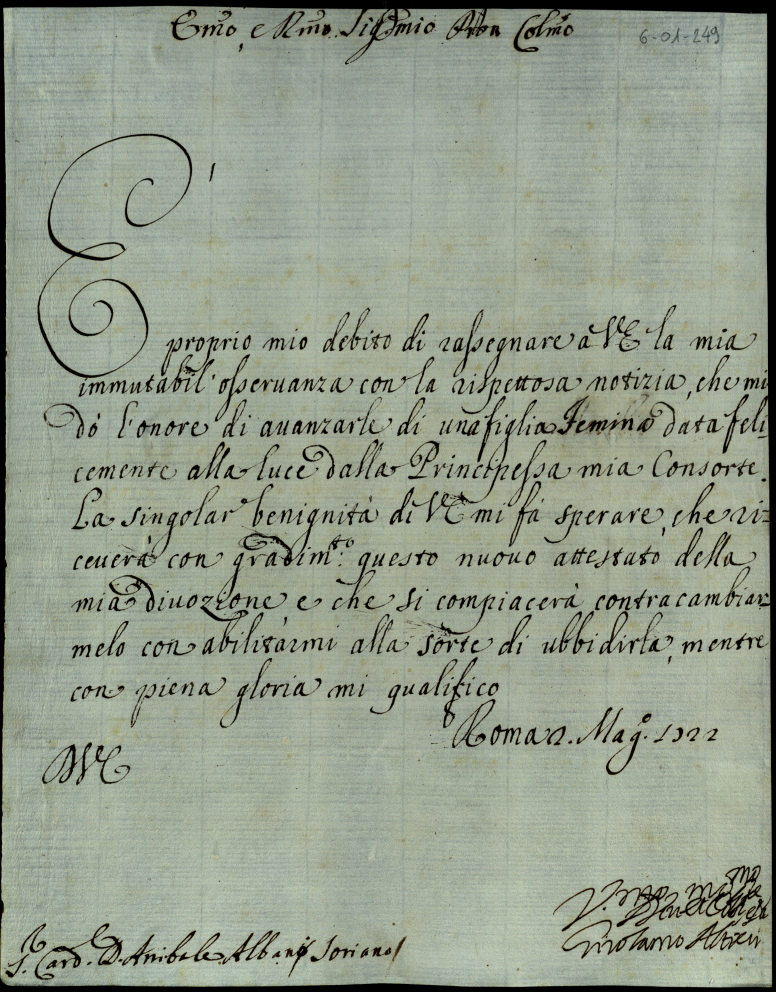 Emo, e Rmo Sig. mio Pron Colmo
6-01-249
E' proprio mio debito di rassegnare à VE la mia
immutabil' osseruanza con la rispettosa notizia, che mi
dó l'onore di auanzarle di una figlia Femina data feli=
cemente alla luce dalla Principessa mia Consorte.
La singolar benignità di VE mi fà sperare, che ri=
ceuerà con gradimto: questo nuouo attestato della
mia diuozione e che si compiacerà contracambiar=
melo con abilitarmi alla sorte di ubbidirla, mentre
con piena gloria mi qualifico
Roma 2. Mago. 1722
DVE
Girolamo Altieri
S. Card. D. Anibale Albani Soriano